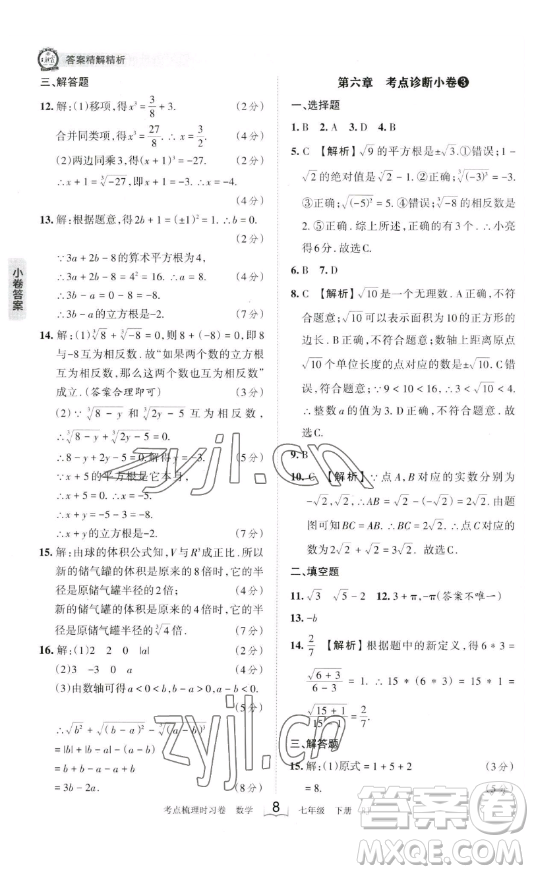 答案精解精析
三、解答题
12. 解:(1)移项,得x³=3/8+3. (2分)
合并同类项,得x³=27/8.∴x=3/2. (4分)
(2)两边同乘3,得(x+1)³=-27. (2分)
∴x+1=∛-27,即x+1=-3.∴x=-4.
(4分)
13. 解:根据题意,得2b+1=(±1)²=1.∴b=0.
(2分)
∵3a+2b-8的算术平方根为4,
∴3a+2b-8=4²=16.∴a=8. (4分)
∴3b-a=0-8=-8.
∴3b-a的立方根是-2. (7分)
14. 解:(1)∛8+∛-8=0,则8+(-8)=0,即8
与-8互为相反数.故“如果两个数的立方根
互为相反数,那么这两个数也互为相反数”
成立.(答案合理即可) (3分)
(2)∵∛8-y和∛2y-5互为相反数,
∴∛8-y+∛2y-5=0.
∴8-y+2y-5=0.解得y=-3. (5分)
∵x+5的平方根是它本身,
∴x+5=0.∴x=-5.
∴x+y=-5-3=-8.
∴x+y的立方根是-2. (7分)
15. 解:由球的体积公式知,V与R³成正比.所以
新的储气罐的体积是原来的8倍时,它的半
径是原储气罐半径的2倍; (4分)
新的储气罐的体积是原来的4倍时,它的半
径是原储气罐半径的∛4倍. (7分)
16. 解:(1)2 2 0 |a| (2分)
(2)3 -3 0 a (4分)
(3)由数轴可得a<0<b,b-a>0,a-b<0.
(5分)
∴√b²+√(b-a)²-∛(a-b)³
=|b|+|b-a|-(a-b)
=b+b-a-a+b
=3b-2a. (8分)
小卷答案
第六章 考点诊断小卷❸
一、选择题
1. B 2. A 3. D 4. B
5. C 【解析】√9的平方根是±√3.①错误;1-
√2的绝对值是√2-1.②正确;∛(-3)³=-3.
③正确;√(-5)²=5.④错误;∛-8的相反数是
2.⑤正确.综上所述,②③⑤正确.∴小亮
得6分.故选C.
6. B 7. D
8. C 【解析】∵√10是一个无理数.A正确,不符
合题意;√10可以表示面积为10的正方形的
边长,B正确,不符合题意;数轴上距离原点
√10个单位长度的点对应的数是±√10,C错
误,符合题意;∵9<10<16,∴3<√10<4.
∴整数a的值为3.D正确,不符合题意.
故选C.
9. B
10. C 【解析】∵点A,B对应的实数分别为
-√2,√2,∴AB=√2-(-√2)=2√2.由题
图可知BC=AB,∴BC=2√2.∴点C对应的
实数为√2+2√2=3√2.故选C.
二、填空题
11. √3 √5-2 12. 3+π,-π(答案不唯一)
13. -b
14. 2/7 【解析】根据题中的新定义,得6*3=
√6+3/6-3=1.∴15*(6*3)=15*1=
√15+1/15-1=2/7.
三、解答题
15. 解:(1)原式=1+5+2 (3分)
=8. (5分)
考点梳理时习卷 数学 8 七年级 下册
zyjl.cn
zyjl.cn
答案圈
MXQE.COM